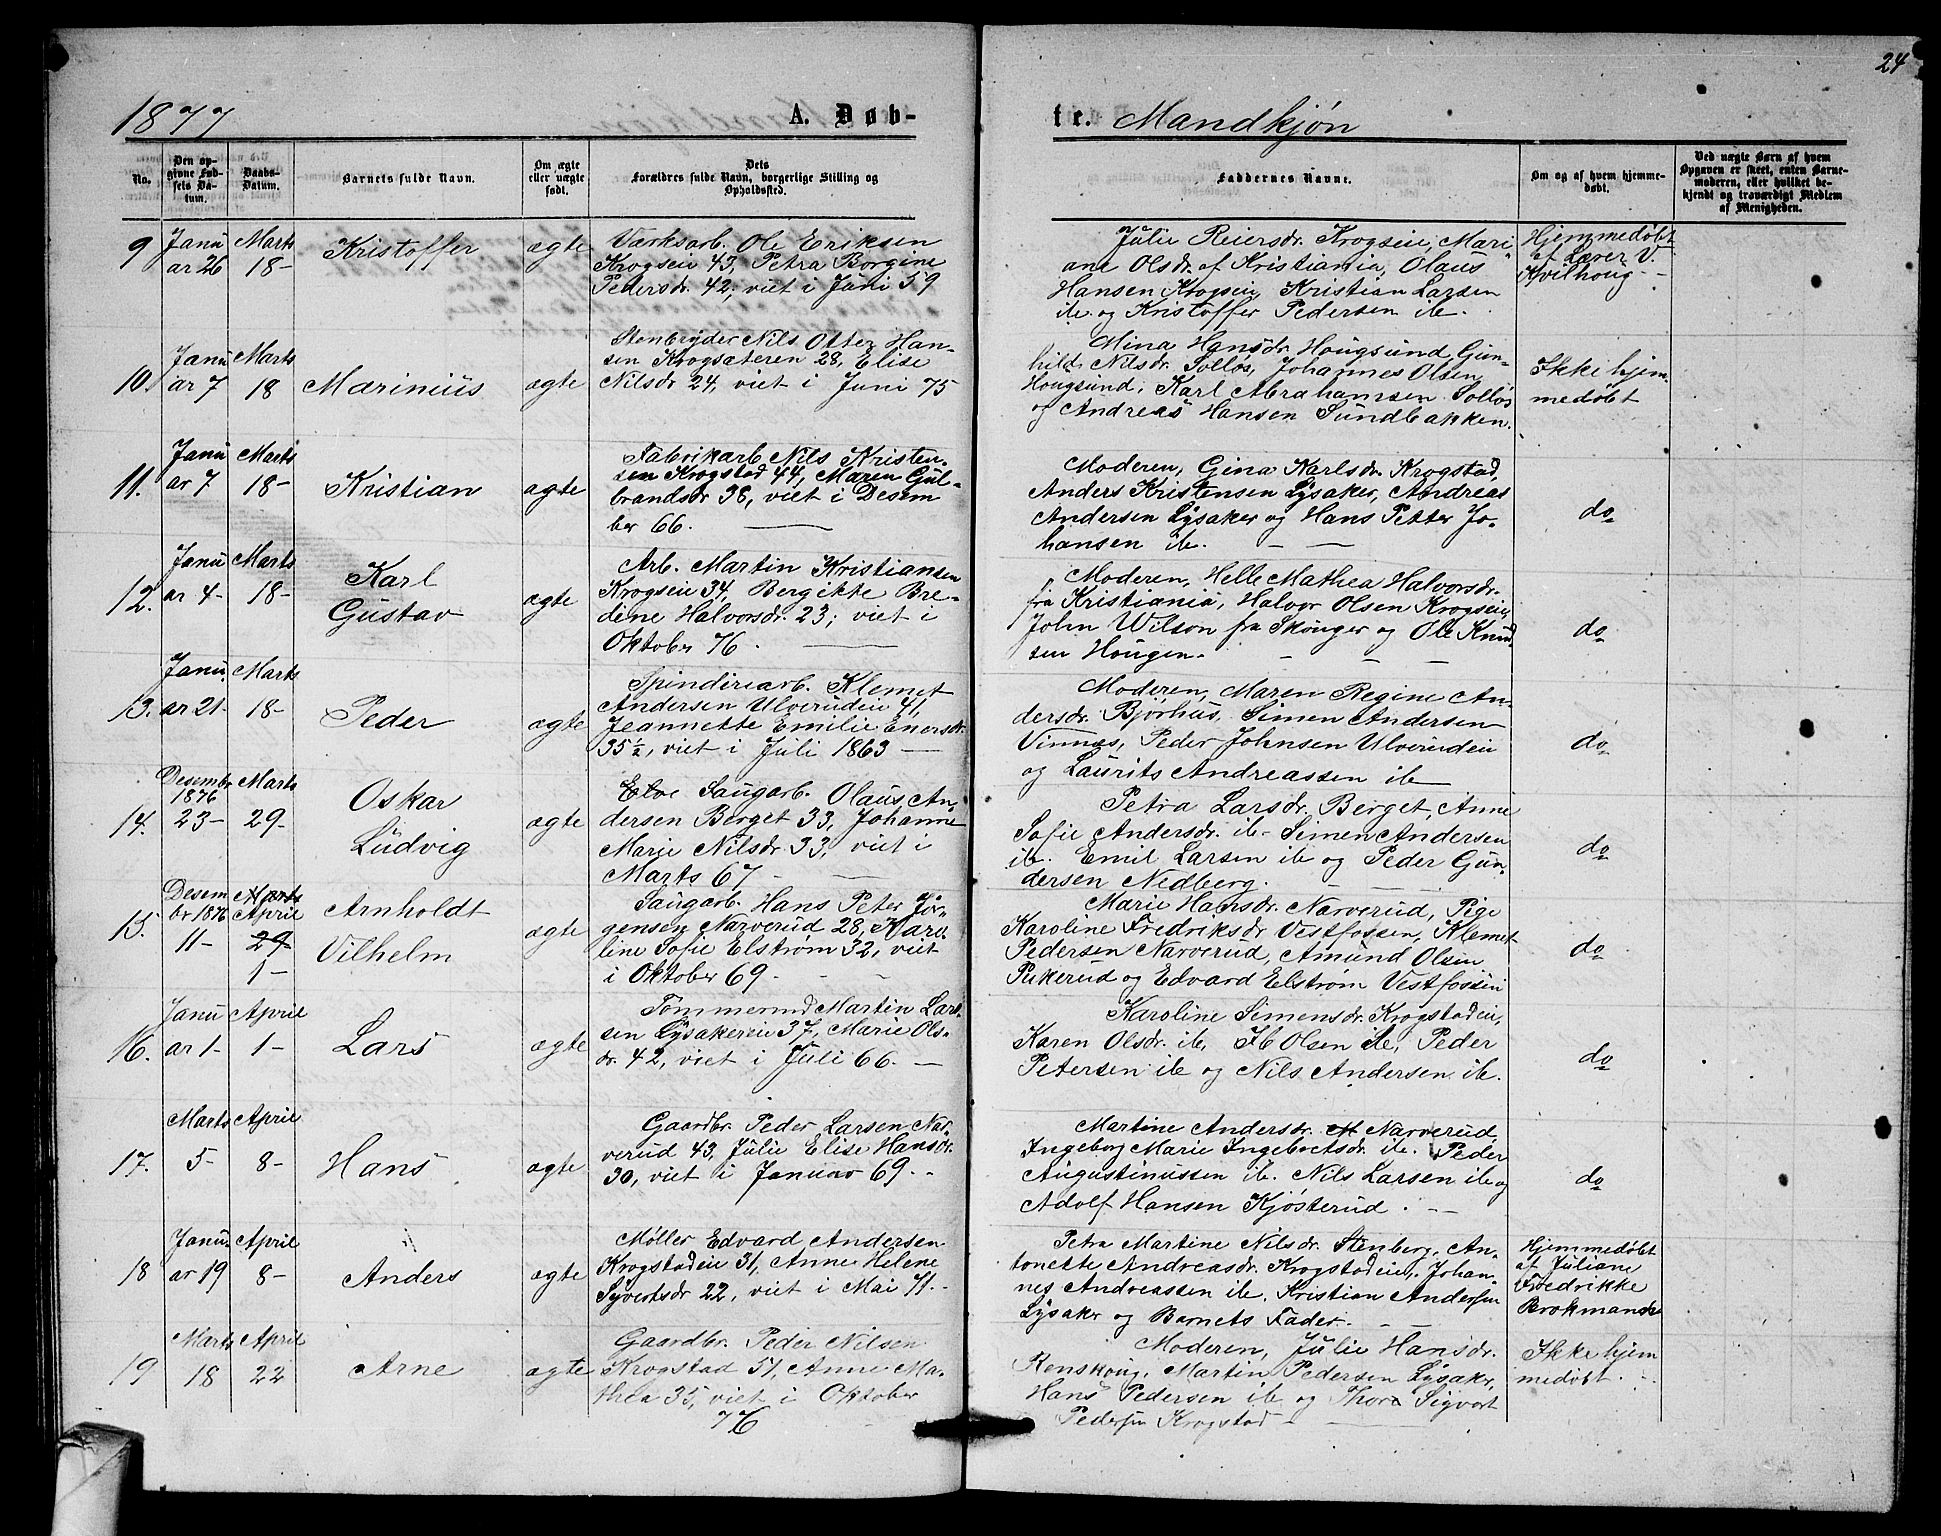 24
1877
A. Døb-
te. Mandkjøn
No.
Den op-
givne Fød-
sels Da-
tum.
Daabs-
Datum.
Barnets fulde Navn.
Om ægte
eller uægte
født.
Dets
Forældres fulde Navn, borgerlige Stilling og
Opholdssted.
Faddernes Navne.
Om og af hvem hjemme-
døbt.
Ved uægte Børn af hvem
Opgaven er skeet, enten Barne-
moderen, eller hvilket be-
kjendt og troværdigt Medlem
af Menigheden.
9
Janu
ar 26
Marts
18-
Kristoffer
ægte
Værksarb. Ole Eriksen
Krogseie 43, Petra Borgine
Pedersdr. 42, viet i Juni 59
Julie Reiersdr. Krogseie, Mari
ane Olsdr. af Kristiania, Olaus
Hansen Krogseie, Kristian Larsen
ib. og Kristoffer Pedersen ib.
Hjemmedøbt
af Lærer V.
Kvilhoug.
10.
Janu
ar 7
Marts
18
Marinius
ægte
Stenbryder Nils Otter Han-
sen Krogsæteren 28, Elise
Nilsdr 24, viet i Juni 75
Mina Hansdr. Hougsund, Gun-
hild Nilsdr. Solløs, Johannes Olsen
Hougsund, Karl Abrahamsen Solløs
og Andreas Hansen Sundbakken.
Ikke hjem-
medøbt
11.
Janu
ar 7
Marts
18-
Kristian
ægte
Fabrikarb. Nils Kristen-
sen Krogstad 44, Maren Gul-
brandsdr 38, viet i Desem
ber 66.
Moderen, Gina Karlsdr. Krogstad,
Anders Kristensen Lysaker, Andreas
Andersen Lysaker og Hans Petter Jo-
hansen ib.
do
12.
Janu
ar 4-
Marts
18-
Karl
Gustav
ægte
Arb. Martin Kristiansen
Krogseie 34, Bergitte Bre-
dine Halvorsdr. 23; viet i
Oktober 76.
Moderen, Helle Mathea Halvorsdr.
fra Kristiania, Halvor Olsen Krogseie,
John Wilson fra Skouger og Ole Knud
sen Hougen.
do
13.
Janu.
ar 21-
Marts
18-
Peder
ægte
Spinderiarb. Klemet
Andersen Ulverudeie 41,
Jeannette Emilie Enersdr.
35½, viet i Juli 1863
Moderen, Maren Regine An-
dersdr. Bjørhus, Simen Andersen
Vinnes, Peder Johnsen Ulverudeie
og Laurits Andreassen ib
do
14.
Desembr
1876
23-
Marts
29-
Oskar
Ludvig
ægte
Saugarb. Olaus An-
dersen Berget 33, Johanne
Marie Nilsdr. 33, viet i
Marts 67
Petra Larsdr. Berget, Anne
Sofie Andersdr. ib- Simen Andersen
ib. Emil Larsen ib og Peder Gun-
dersen Nedberg.
do
15.
Desem
br 1876
11-
Marts
April
29-
1-
Arnholdt
Vilhelm
ægte
Saugarb. Hans Peter Jør-
gensen Narverud 28, Karo-
line Sofie Elstrøm 32, viet
i Oktober 69.
Marie Hansdr. Narverud, Pige
Karoline Fredriksdr Vestfossen, Klemet
Pedersen Narverud, Amund Olsen
Pukerud og Edvard Elstrøm Vestfossen
do
16.
Janu
ar 1-
April
1-
Lars
ægte
Tømmermd Martin Lars-
sen Lysakereie 37, Marie Ols-
dr. 42, viet i Juli 66.
Karoline Simensdr. Krogstadeie,
Karen Olsdr. ib, Ib Olsen ib, Peder
Petersen ib og Nils Andersen ib.
do
17.
Marts
5-
April
8-
Hans
ægte
Gaardbr. Peder Larsen Nar-
verud 43, Julie Elise Hansdr.
30, viet i Januar 69.
Martine Andersdr. Narverud,
Ingeborg Marie Ingebretsdr. ib. Peder
Augustinussen ib. Nils Larsen ib og
Adolf Hansen Kjøsterud.
do
18
Janu-
ar 19
April
8-
Anders
ægte
Møller Edvard Andersen
Krogstadeie 31, Anne Helene
Syvertsdr 22, viet i Mai 71.
Petra Martine Nilsdr. Stenberg, An-
tonette Andreasdr. Krogstadeie, Johan-
nes Andreassen ib. Kristian Andersen
Lysaker og Barnets Fader.
Hjemmedøbt
af Juliane
Fredrikke
Brokmanske
19
Marts
18
April
22
Arne
ægte
Gaardbr. Peder Nilsen
Krogstad 51, Anne Ma-
thea 35, viet i Oktober
76
Moderen, Julie Hansdr.
Renskoug, Martin Pedersen Lysaker,
Hans Pedersen ib og Thora Sigvart
Pedersen Krogstad
Ikke hjem
medøbt.